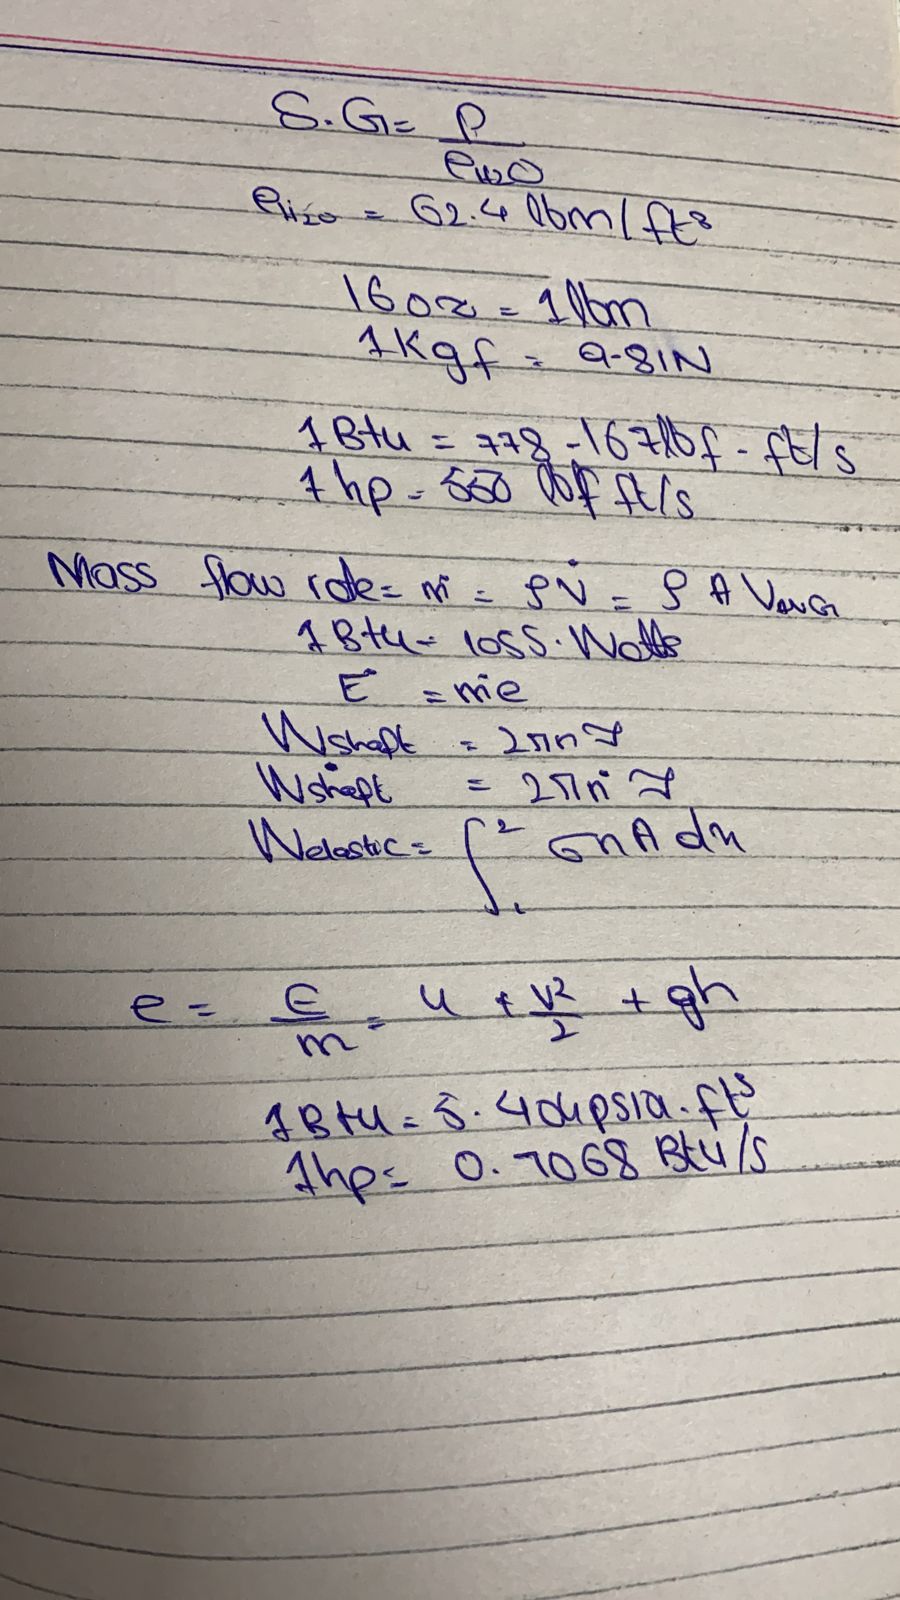 S.G = ρ / ρH2O
ρH2O = 62.4 lbm/ft³
16 oz = 1 lbm
1 Kgf = 9.81N
1 Btu = 778.167 lbf - ft/s
1 hp = 550 lbf ft/s
Mass flow rate = ṁ = ρV̇ = ρ A VAVG
1 Btu = 1055. Watts
Ė = ṁe
Wshaft = 2πnT
Ẇshaft = 2πṅT
Welastic = ∫₁² σn A dx
e = E/m = u + V²/2 + gh
1 Btu = 5.404 psia.ft³
1hp = 0.7068 Btu/s